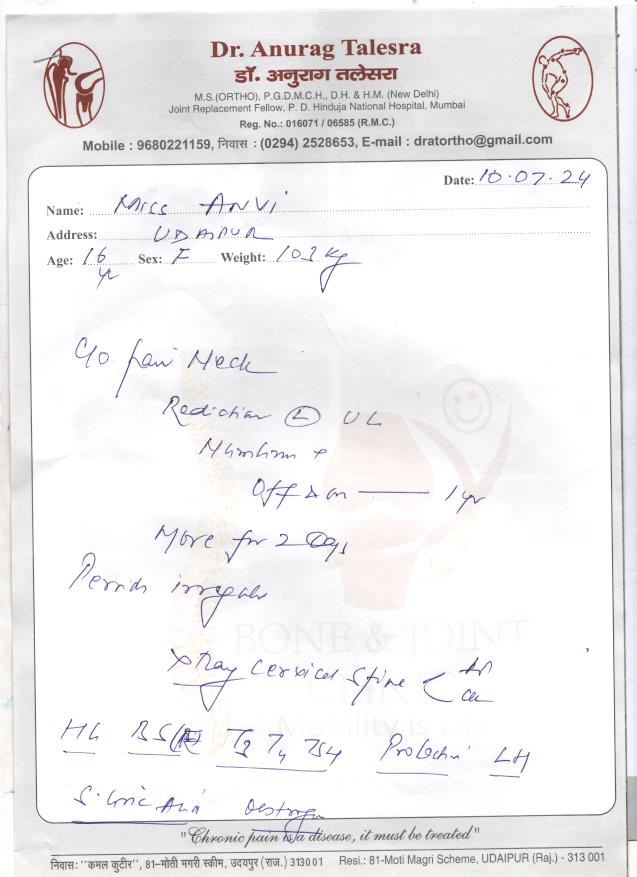 Dr. Anurag Talesra
डॉ. अनुराग तलेसरा
M.S.(ORTHO), P.G.D.M.C.H., D.H. & H.M. (New Delhi)
Joint Replacement Fellow, P. D. Hinduja National Hospital, Mumbai
Reg. No.: 016071 / 06585 (R.M.C.)
Mobile : 9680221159, निवास : (0294) 2528653, E-mail : dratortho@gmail.com
Date: 10.07.24
Name: Miss ANVI
Address: UDAIPUR
Age: 16 yr Sex: F Weight: 103 kg
C/o pain Neck
Radiation (L) UL
Off & on — 1 yr
More for 2 Days
Periods irregular
X Ray Cervical Spine < AP
Lat
BONE & JOINT
CLINIC
Mobility is Life
Hb BS(R) T3 T4 TSH Prolactin LH
S. Uric Acid Oestrogen
"Chronic pain is a disease, it must be treated"
निवास: "कमल कुटीर", 81-मोती मगरी स्कीम, उदयपुर (राज.) 313 001 Resi.: 81-Moti Magri Scheme, UDAIPUR (Raj.) - 313 001